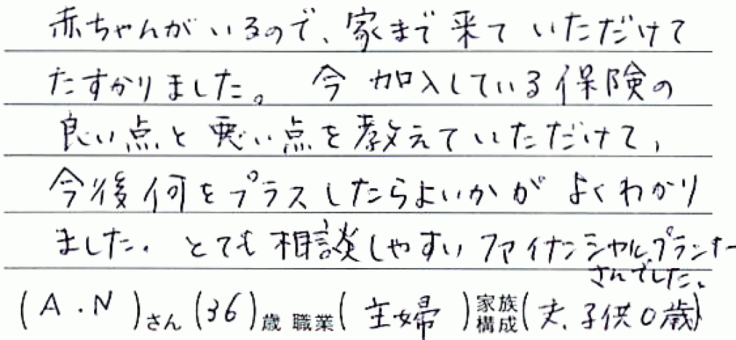 赤ちゃんがいるので、家まで来ていただけて
たすかりました。今加入している保険の
良い点と悪い点を教えていただけて、
今後何をプラスしたらよいかがよくわかり
ました。とても相談しやすいファイナンシャルプランナー
さんでした。
(A.N)さん(36)歳 職業(主婦)家族構成(夫、子供0歳)